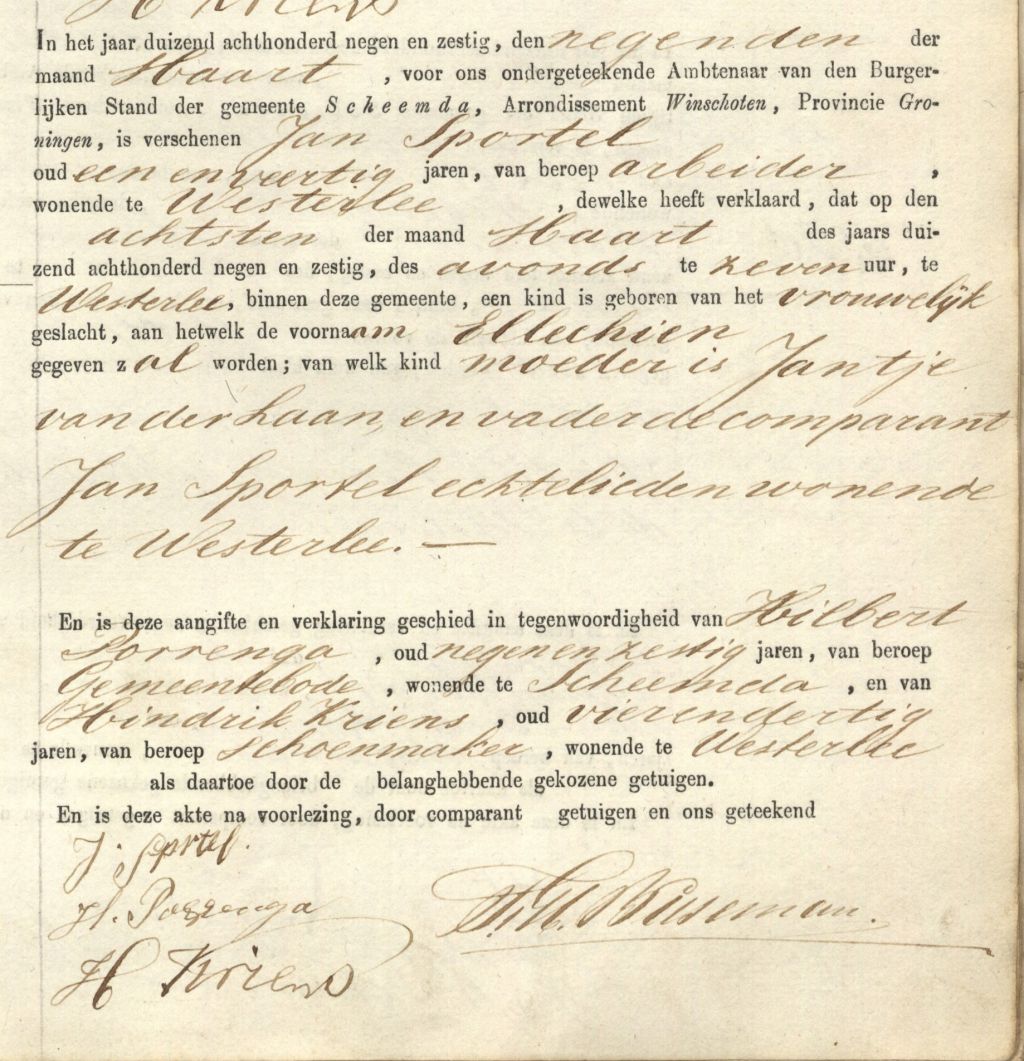 H Kriens
In het jaar duizend achthonderd negen en zestig, den negenden der
maand Maart, voor ons ondergeteekende Ambtenaar van den Burger-
lijken Stand der gemeente Scheemda, Arrondissement Winschoten, Provincie Gro-
ningen, is verschenen Jan Sportel
oud een en veertig jaren, van beroep arbeider,
wonende te Westerlee, dewelke heeft verklaard, dat op den
achtsten der maand Maart des jaars dui-
zend achthonderd negen en zestig, des avonds te zeven uur, te
Westerlee, binnen deze gemeente, een kind is geboren van het vrouwelijk
geslacht, aan hetwelk de voornaam Ellechien
gegeven zal worden; van welk kind moeder is Jantje
van der Laan, en vader de comparant
Jan Sportel echtelieden wonende
te Westerlee. —
En is deze aangifte en verklaring geschied in tegenwoordigheid van Hilbert
Porrenga, oud negen en zestig jaren, van beroep
Gemeentebode, wonende te Scheemda, en van
Hindrik Kriens, oud vier en dertig
jaren, van beroep schoenmaker, wonende te Westerlee
als daartoe door de belanghebbende gekozene getuigen.
En is deze akte na voorlezing, door comparant getuigen en ons geteekend
J. Sportel.
H. Porrenga
H Kriens